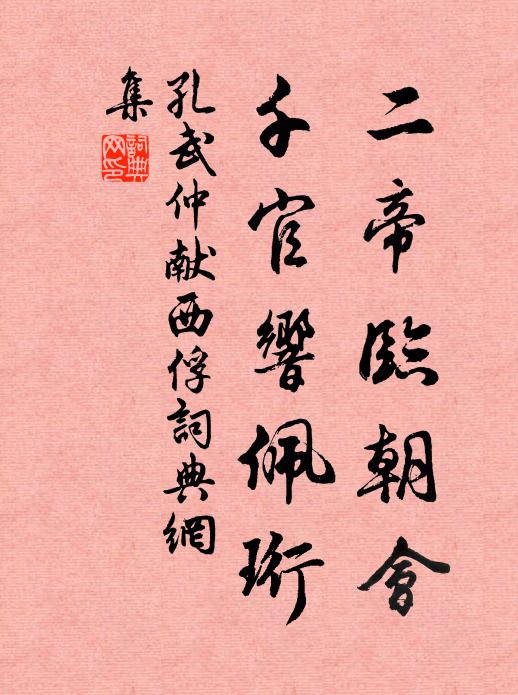 二帝臨朝會
千官響佩珩
孔武仲献西俘詞典網
集
詞典网印